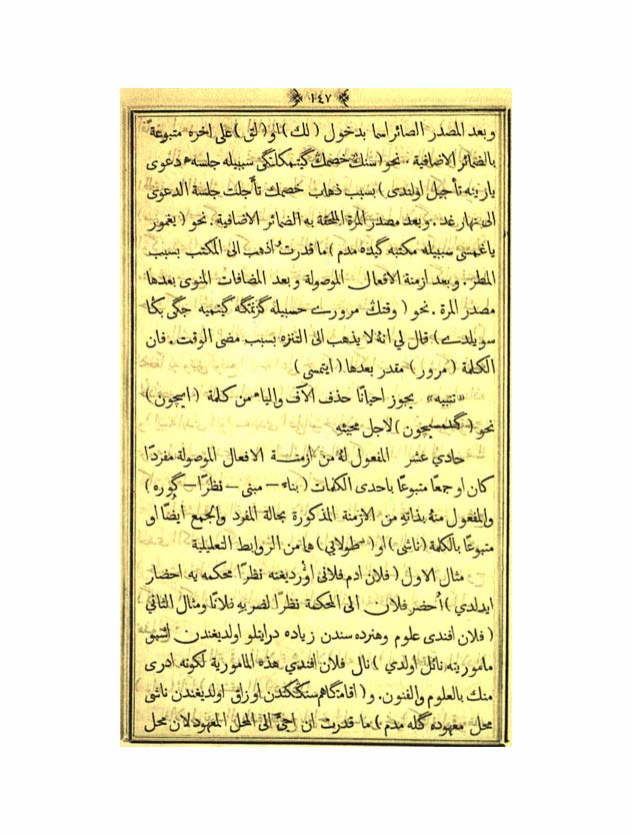 ١٤٧
وبعد المصدر الصائر اسما بدخول (لك) او (لق) على اخره متبوعةً
بالضمائر الاضافية . نحو (سنك خصمك كيتمكلكى سبيله جلسهء دعوى
يارينه تأجيل اولندى) بسبب ذهاب خصمك تأجلت جلسة الدعوى
الى نهار غد . وبعد مصدر المرة الملحقة به الضمائر الاضافية . نحو (يغمور
ياغمسى سبيله مكتبه كيده مدم) ما قدرت اذهب الى المكتب بسبب
المطر . وبعد ازمنة الافعال الموصولة وبعد المضافات المنوى بعدها
مصدر المرة . نحو (وقتك مرورى حسبيله كزنمكه كيتميه جكى بكا
سويلدى) قال لي انهُ لا يذهب الى التنزه بسبب مضى الوقت . فان
الكلمة (مرور) مقدر بعدها (ايتمسى)
«تنبيه» يجوز احيانًا حذف الالف والياء من كلمة (ايچون)
نحو (كلمسيچون) لاجل مجيئه
حادي عشر المفعول لهُ من ازمنة الافعال الموصولة مفردًا
كان او جمعًا متبوعًا باحدى الكلمات (بناء – مبنى – نظرًا – كوره)
والمفعول منهُ بذاتهِ من الازمنة المذكورة بحالة المفرد والجمع ايضًا او
متبوعًا بالكلمة (ناشى) او (طولايى) هما من الروابط التعليلية
مثال الاول (فلان ادم فلانى اوُرديغنه نظرًا محكمه يه احضار
ايدلدي) اُحضر فلان الى المحكمة نظرًا لضربهِ فلانًا ومثال الثاني
(فلان افندى علوم وهنرده سندن زياده درايتلو اولديغندن اشبو
مأموريته نائل اولدي) نال فلان افندي هذه المامورية لكونه ادرى
منك بالعلوم والفنون . و (اقامتكاهم سنككندن اوزاق اولديغندن ناشى
محل معهوده كله مدم) ما قدرت ان اجئَ الى المحل المعهود لان محل